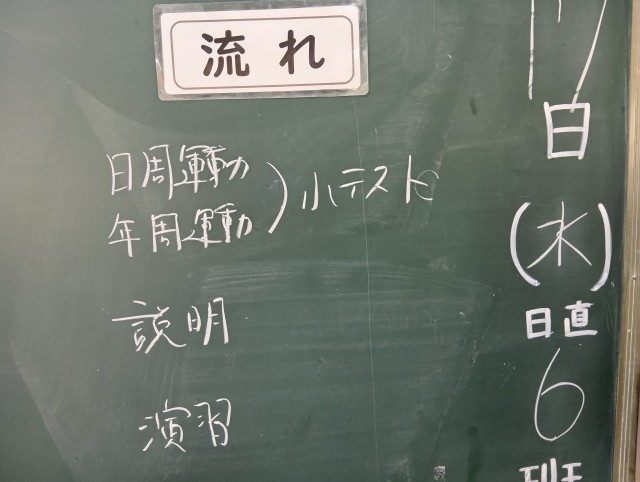 流れ
日周運動
年周運動
)小テスト
説明
演習
17
日
(水)
日直
6
班